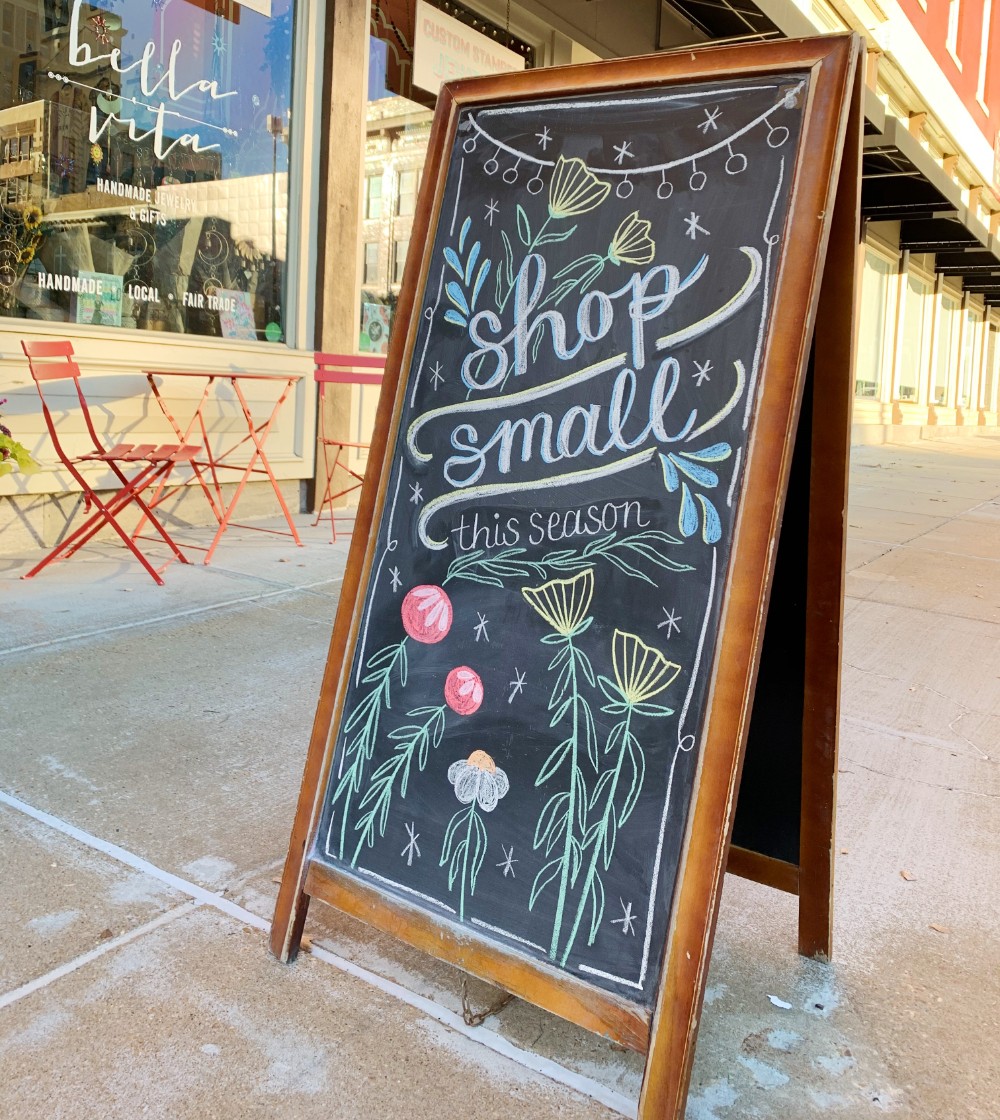 bella
vita
HANDMADE JEWELRY
& GIFTS
HANDMADE • LOCAL • FAIR TRADE
CUSTOM STAMPED
shop
small
this season